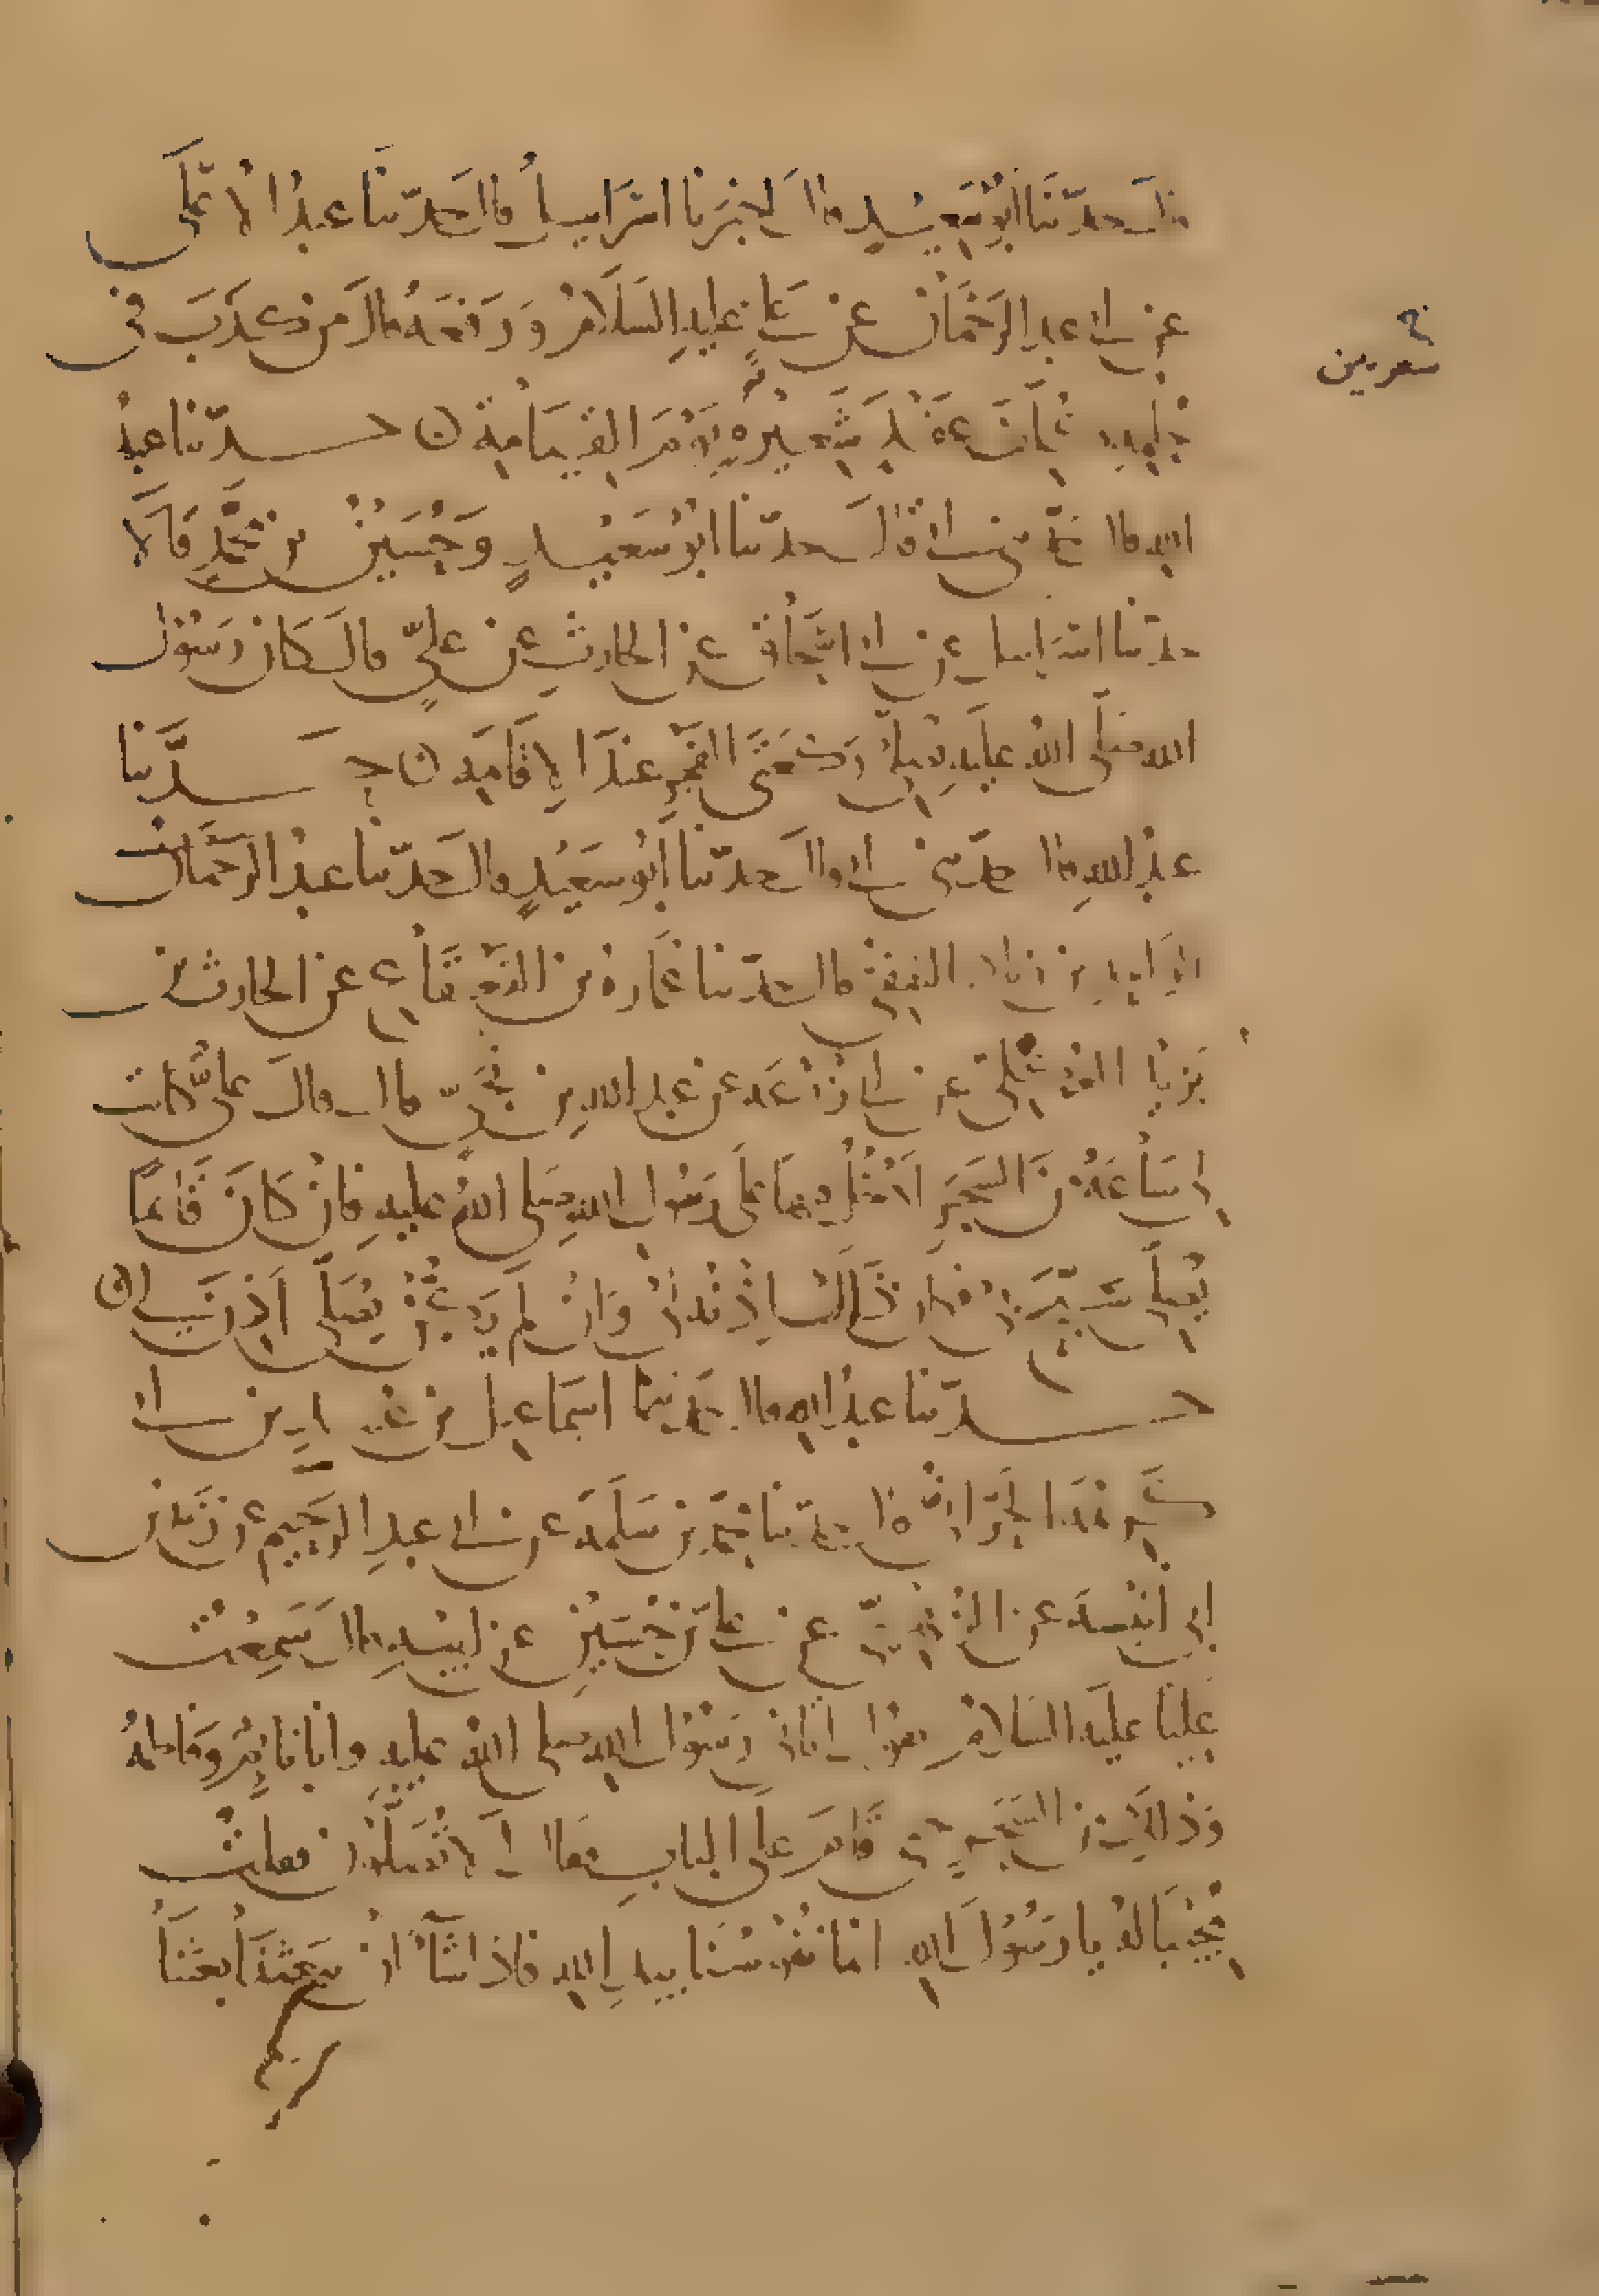 قال حدثنا أبو سعيد قال أخبرنا إسرائيل قال حدثنا عبد الأعلى
عن أبي عبد الرحمان عن علي عليه السلام ورفعه قال من كذب في
حلمه كلف عقد شعيرة يوم القيامة ن حدثنا عبد
شعرتين
الله قال حدثني أبي قال حدثنا أبو سعيد وحسين بن محمد قالا
حدثنا إسرائيل عن أبي إسحاق عن الحارث عن علي قال كان رسول
الله صلى الله عليه يصلي ركعتي الفجر عند الإقامة ن حدثنا
عبد الله قال حدثني أبي قال حدثنا أبو سعيد قال حدثنا عبد الرحمان
الواحد بن زياد الثقفي قال حدثنا عمارة بن القعقاع عن الحارث بن
يزيد العكلي عن أبي زرعة عن عبد الله بن نجي قال قال علي كانت
لي ساعة من السحر أدخل فيها على رسول الله صلى الله عليه فإن كان قائما
يصلي سبح بي فكان ذاك إذنه لي وإن لم يكن يصلي أذن لي ن
حدثنا عبد الله قال حدثنا إسماعيل بن عبيد بن أبي
كريمة الحراني قال حدثنا محمد بن سلمة عن أبي عبد الرحيم عن زيد بن
أبي أنيسة عن الزهري عن علي بن حسين عن أبيه قال سمعت
عليا عليه السلام يقول أتاني رسول الله صلى الله عليه وأنا نائم وفاطمة
وذلك من السحر حتى قام على الباب فقال ألا تصلون فقلت
مجيبا له يا رسول الله إنما نفوسنا بيد الله فإذا شاء أن يبعثنا بعثنا